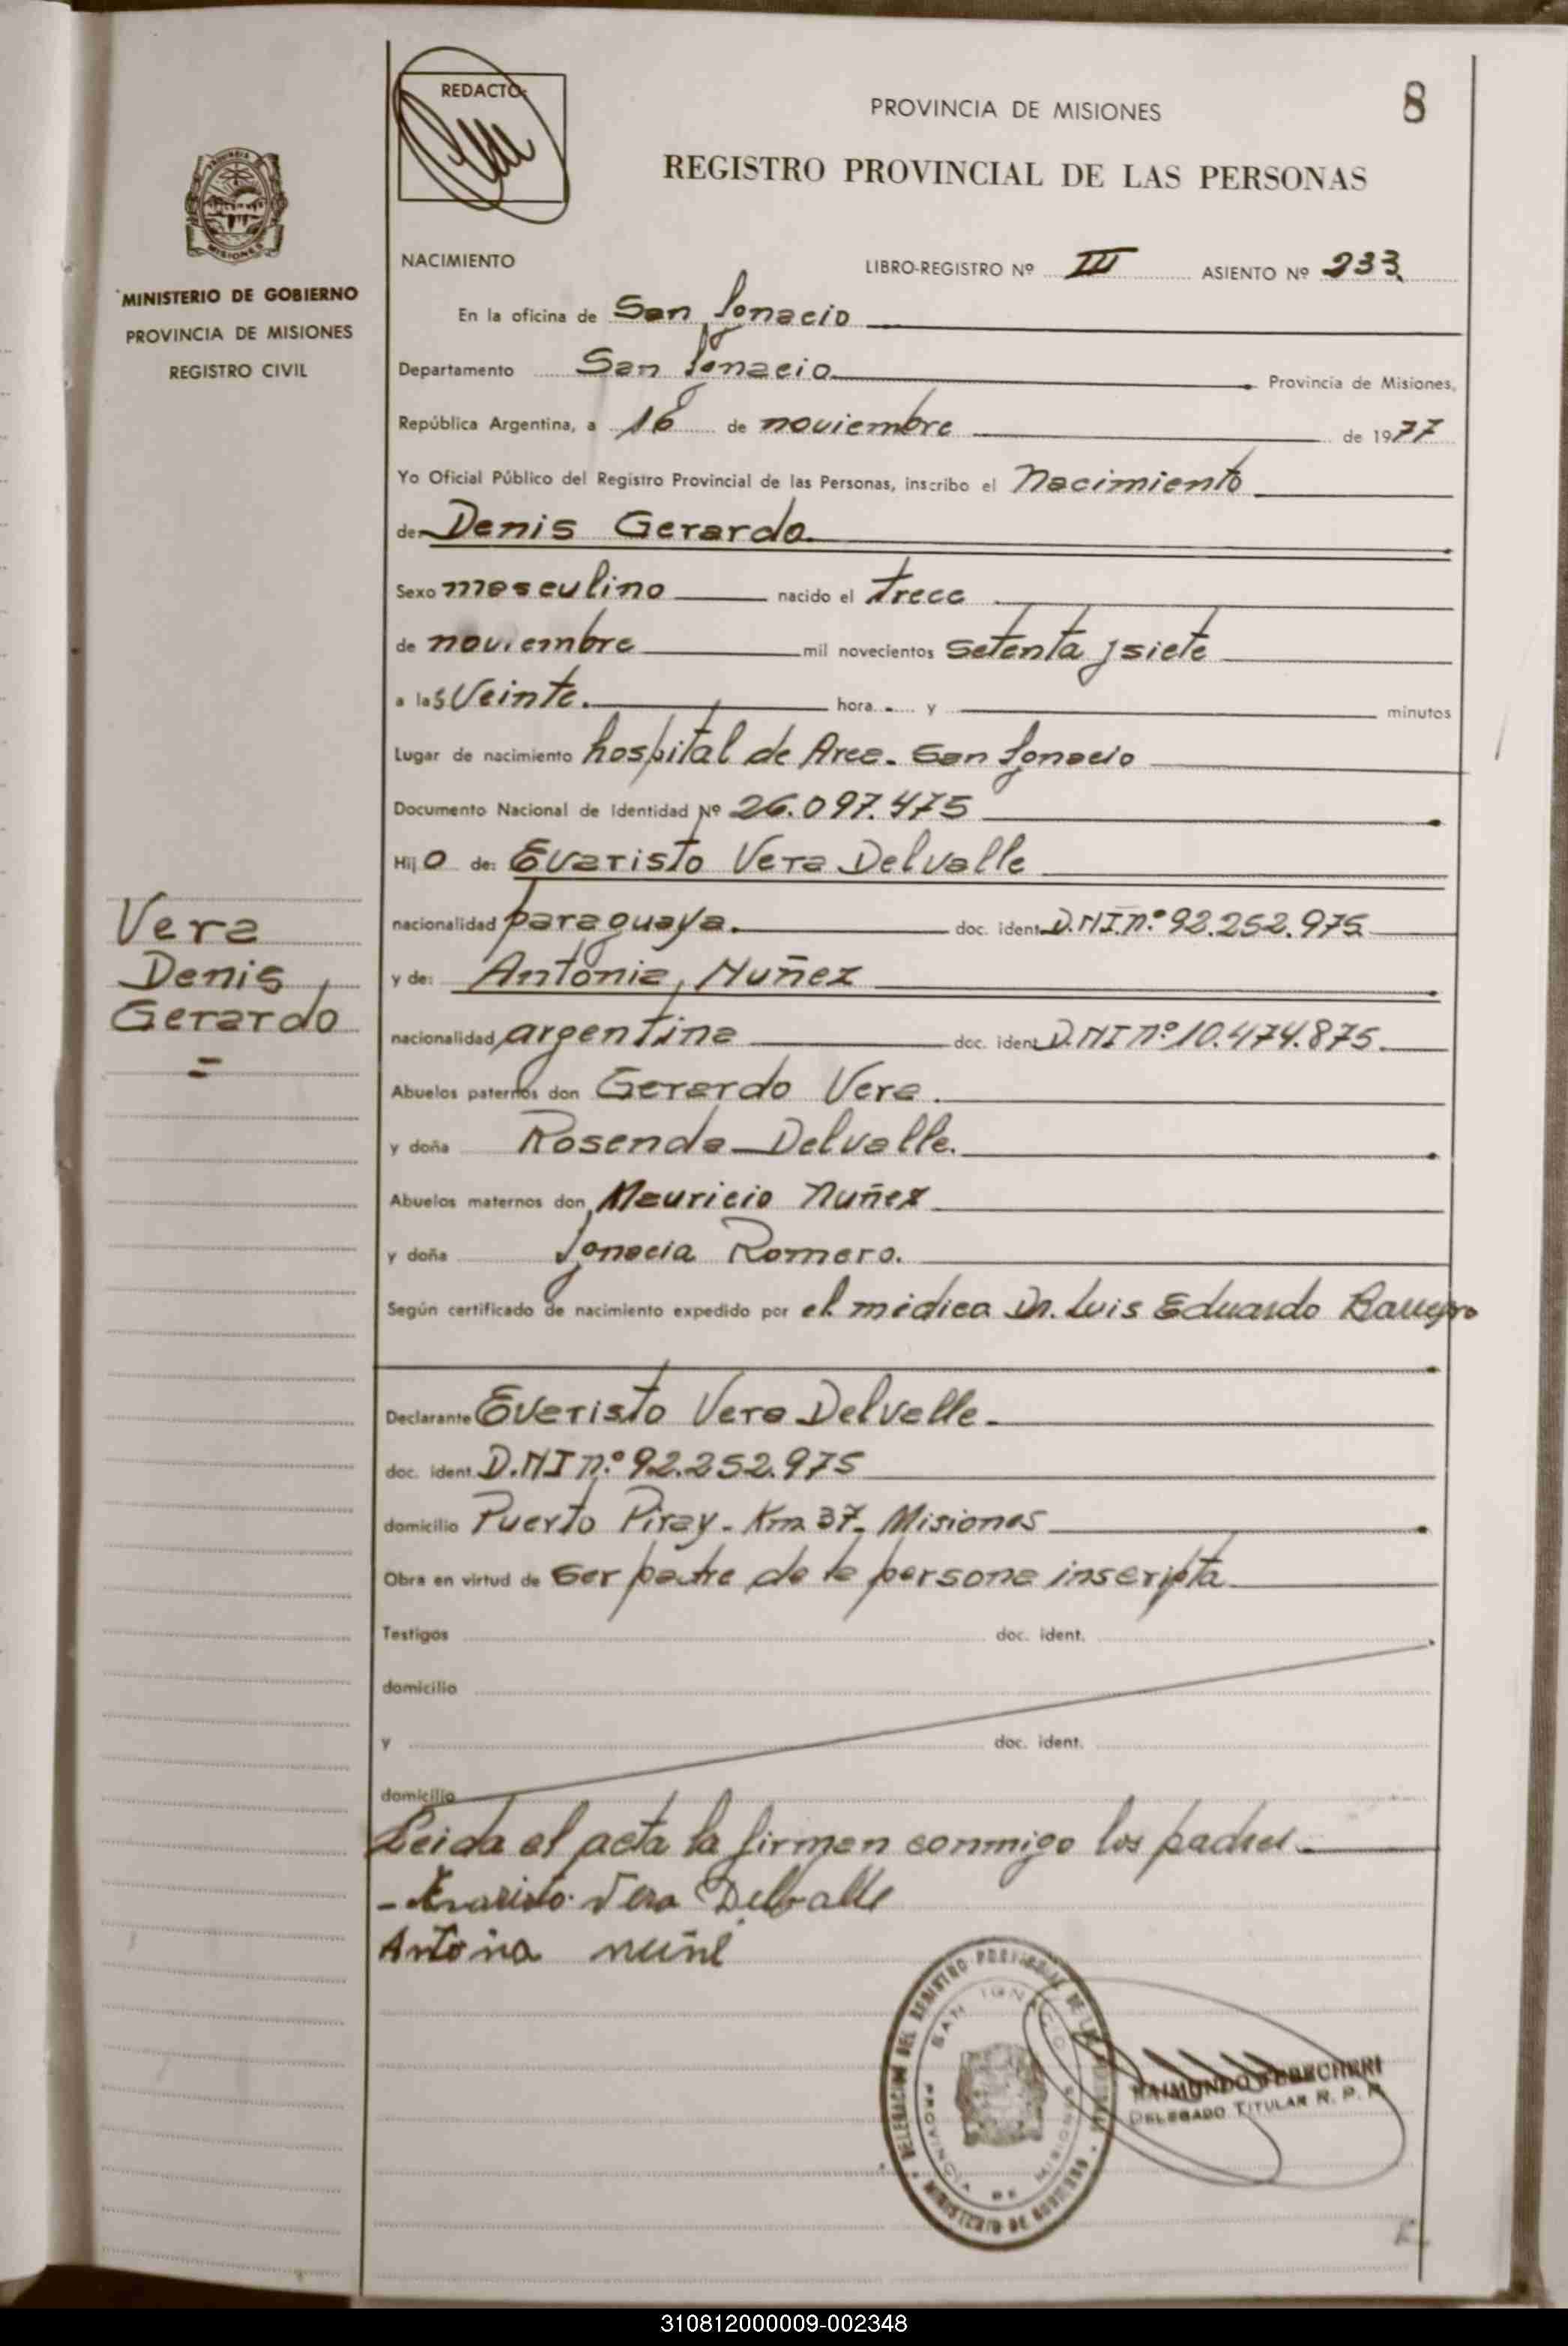 REDACTO:
8
PROVINCIA DE MISIONES
REGISTRO PROVINCIAL DE LAS PERSONAS
MISIONES
MINISTERIO DE GOBIERNO
PROVINCIA DE MISIONES
REGISTRO CIVIL
NACIMIENTO LIBRO-REGISTRO Nº III ASIENTO Nº 233
En la oficina de San Ignacio
Departamento San Ignacio Provincia de Misiones,
República Argentina, a 16 de noviembre de 1977
Yo Oficial Público del Registro Provincial de las Personas, inscribo el Nacimiento
de Denis Gerardo
Sexo masculino nacido el trece
de noviembre mil novecientos setenta y siete
a las Veinte. hora y minutos
Lugar de nacimiento hospital de Area - San Ignacio
Documento Nacional de Identidad Nº 26.097.475
Hijo de: Evaristo Vera Delvalle
nacionalidad paraguaya. doc. ident. D.N.I.nº 92.252.975
y de: Antonia Nuñez
nacionalidad argentina doc. ident. D.NI nº 10.474.875
Abuelos paternos don Gerardo Vera.
y doña Rosenda Delvalle.
Abuelos maternos don Mauricio Nuñez
y doña Ignacia Romero.
Según certificado de nacimiento expedido por el médico Dr. Luis Eduardo
Declarante Evaristo Vera Delvalle
doc. ident. D.NI nº 92.252.975
domicilio Puerto Piray - Km 37 - Misiones
Obra en virtud de ser padre de la persona inscripta
Testigos doc. ident.
domicilio
y doc. ident.
domicilio
Leida el acta la firman conmigo los padres
- Evaristo Vera Delvalle
Antonia nuñe
Vera
Denis
Gerardo
DELEGACION DEL REGISTRO PROVINCIAL DE LAS PERSONAS
SAN IGNACIO
PROVINCIA DE MISIONES
MINISTERIO DE GOBIERNO
RAIMUNDO
DELEGADO TITULAR R. P. P.
310812000009-002348